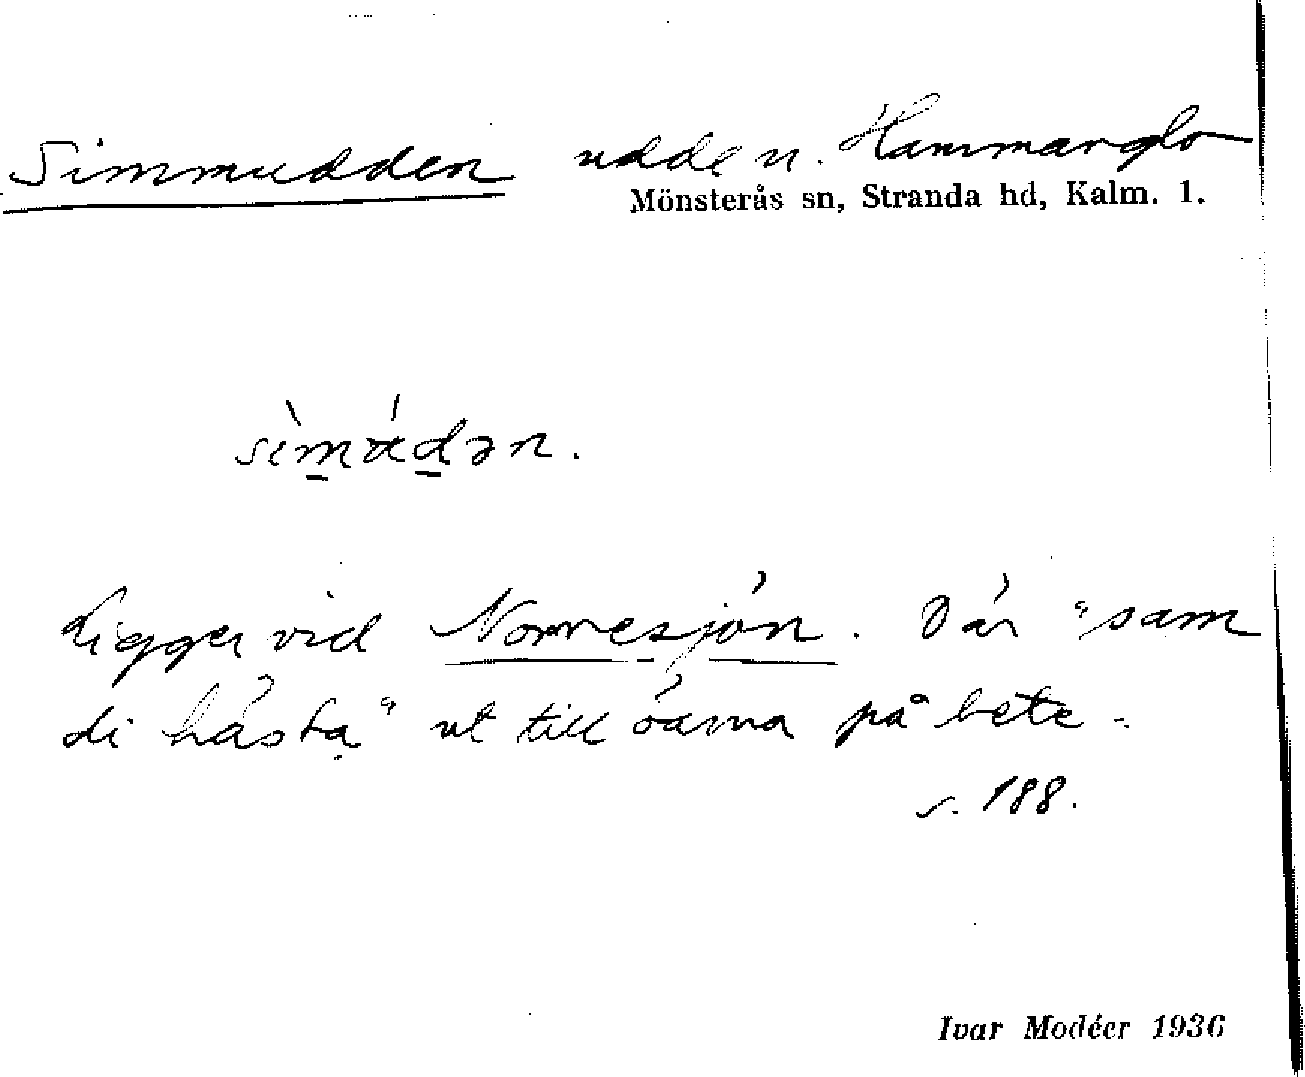 Simmudden udde n. Hammarglo
Mönsterås sn, Stranda hd, Kalm. l.
sìmádən.
Ligger vid Norresjön. Där "sam
di hästa" ut till öarna på bete.
s. 188.
Ivar Modéer 1936